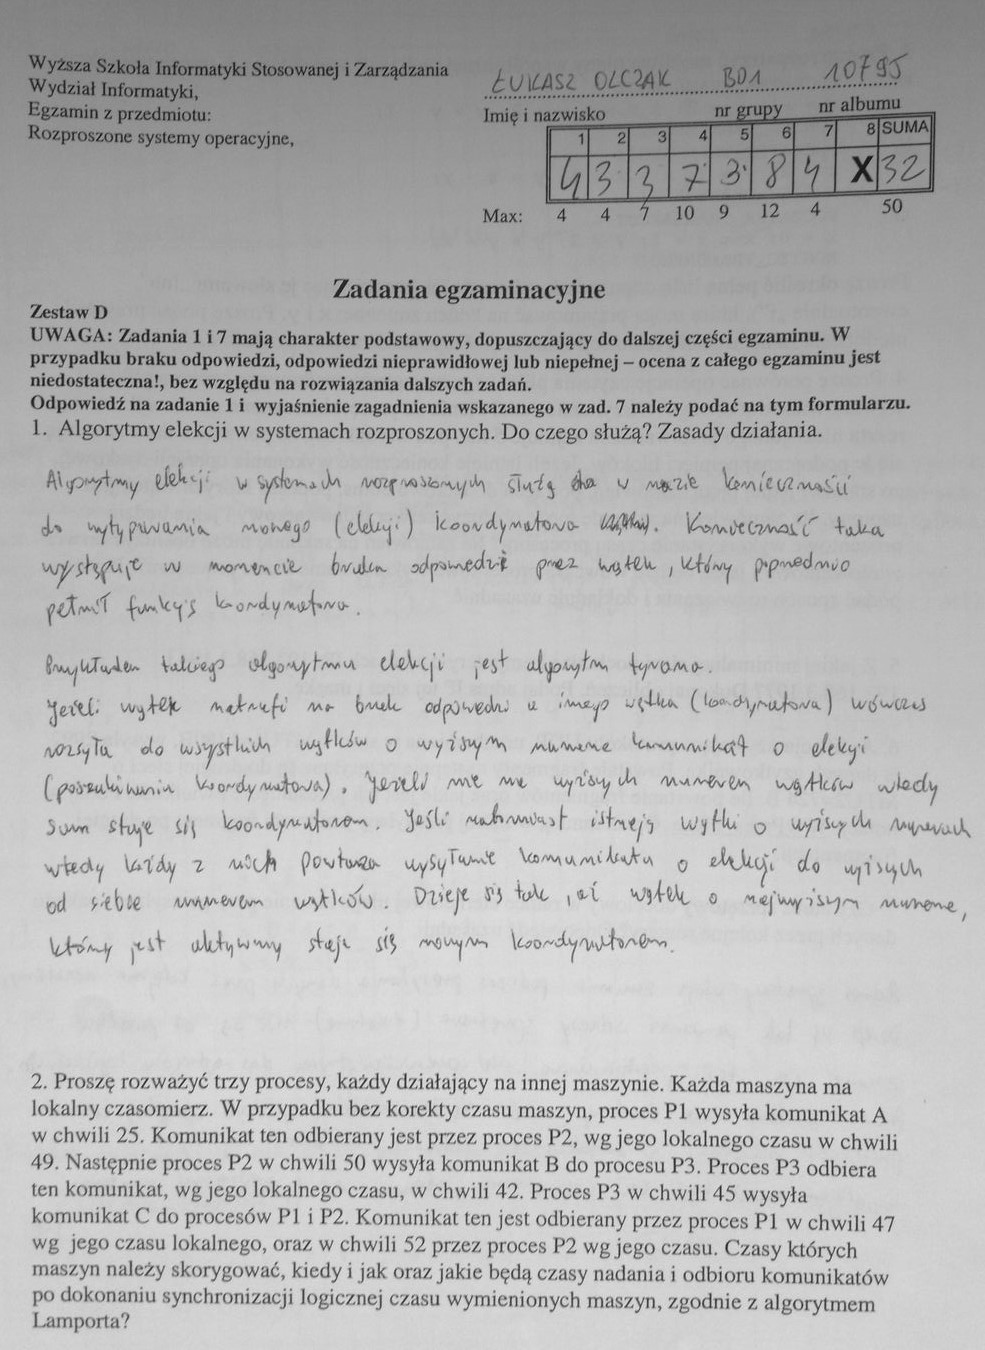 Wyższa Szkoła Informatyki Stosowanej i Zarządzania
Wydział Informatyki,
Egzamin z przedmiotu:
Rozproszone systemy operacyjne,
ŁUKASZ OLCZAK BD1 10795
Imię i nazwisko nr grupy nr albumu
1 2 3 4 5 6 7 8 SUMA
4 3 3 7 3 8 4 X 32
Max: 4 4 7 10 9 12 4 50
Zadania egzaminacyjne
Zestaw D
UWAGA: Zadania 1 i 7 mają charakter podstawowy, dopuszczający do dalszej części egzaminu. W
przypadku braku odpowiedzi, odpowiedzi nieprawidłowej lub niepełnej – ocena z całego egzaminu jest
niedostateczna!, bez względu na rozwiązania dalszych zadań.
Odpowiedź na zadanie 1 i wyjaśnienie zagadnienia wskazanego w zad. 7 należy podać na tym formularzu.
1. Algorytmy elekcji w systemach rozproszonych. Do czego służą? Zasady działania.
Algorytmy elekcji w systemach rozproszonych służą w razie konieczności
do wytypowania nowego (elekcji) koordynatora. Konieczność taka
występuje w momencie braku odpowiedzi przez wątek, który poprzednio
pełnił funkcję koordynatora.
Przykładem takiego algorytmu elekcji jest algorytm tyrana.
Jeżeli wątek natrafi na brak odpowiedzi u innego wątka (koordynatora) wówczas
rozsyła do wszystkich wątków o wyższym numerze komunikat o elekcji
(poszukiwaniu koordynatora). Jeżeli nie ma wyższych numerem wątków wtedy
sam staje się koordynatorem. Jeśli natomiast istnieją wątki o wyższych numerach
wtedy każdy z nich powtarza wysyłanie komunikatu o elekcji do wyższych
od siebie numerem wątków. Dzieje się tak, aż wątek o najwyższym numerze,
który jest aktywny staje się nowym koordynatorem.
2. Proszę rozważyć trzy procesy, każdy działający na innej maszynie. Każda maszyna ma
lokalny czasomierz. W przypadku bez korekty czasu maszyn, proces P1 wysyła komunikat A
w chwili 25. Komunikat ten odbierany jest przez proces P2, wg jego lokalnego czasu w chwili
49. Następnie proces P2 w chwili 50 wysyła komunikat B do procesu P3. Proces P3 odbiera
ten komunikat, wg jego lokalnego czasu, w chwili 42. Proces P3 w chwili 45 wysyła
komunikat C do procesów P1 i P2. Komunikat ten jest odbierany przez proces P1 w chwili 47
wg jego czasu lokalnego, oraz w chwili 52 przez proces P2 wg jego czasu. Czasy których
maszyn należy skorygować, kiedy i jak oraz jakie będą czasy nadania i odbioru komunikatów
po dokonaniu synchronizacji logicznej czasu wymienionych maszyn, zgodnie z algorytmem
Lamporta?